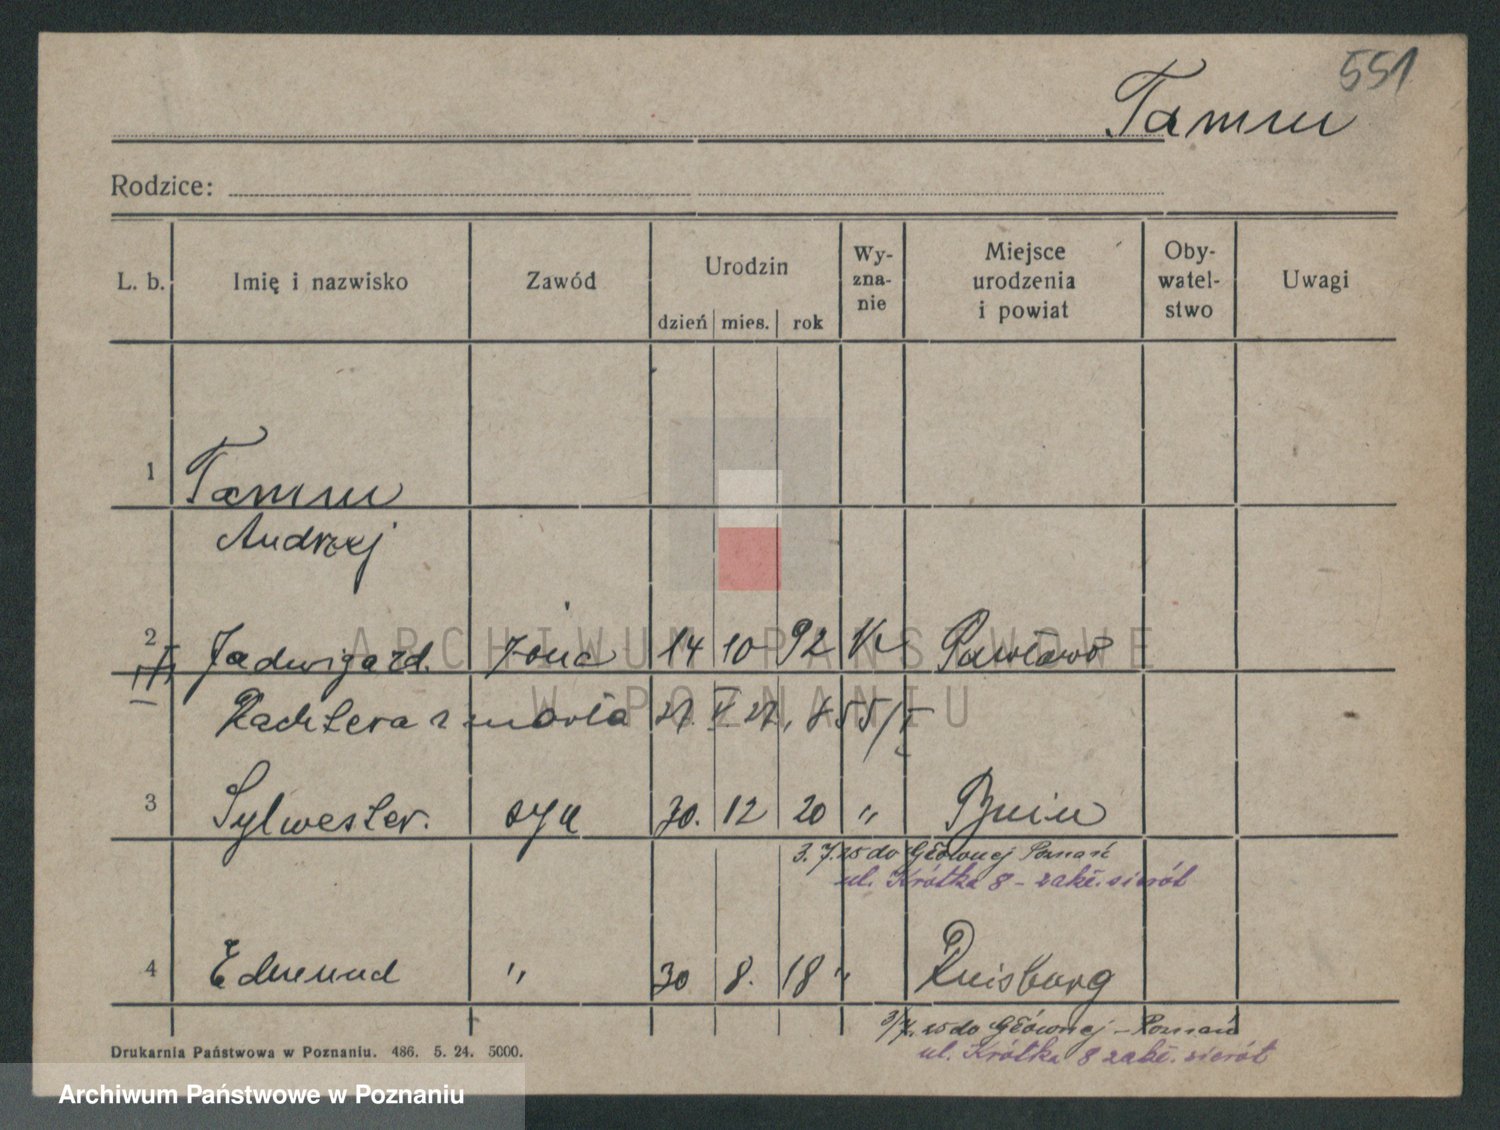 551
Tamm
Rodzice:
L. b. Imię i nazwisko Zawód Urodzin dzień mies. rok Wy-zna-nie Miejsce urodzenia i powiat Oby-watel-stwo Uwagi
1 Tamm
Andrzej
2 Jadwiga zd. żona 14 10 92 K Pawłowo
27. V. 27.
3 Sylwester. syn 30. 12 20 "
3. 7. 25 do Głównej Poznań
ul. Krótka 8 - zakł. sierót
4 Edmund " 30 8. 18 " Duisburg
3/7. 25 do Głównej - Poznań
ul. Krótka 8 zakł. sierót
Drukarnia Państwowa w Poznaniu. 486. 5. 24. 5000.
ARCHIWUM PAŃSTWOWE
W POZNANIU
Archiwum Państwowe w Poznaniu